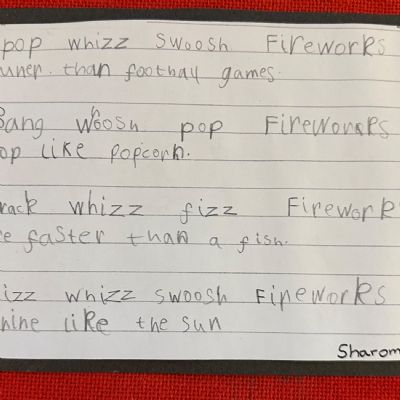 pop whizz swoosh Fireworks
uner. than foothall games.
Bang whoosh pop Fireworks
op like popcorn.
rack whizz fizz Firework
e faster than a fish.
izz whizz swoosh Fireworks
hine like the sun
Sharom